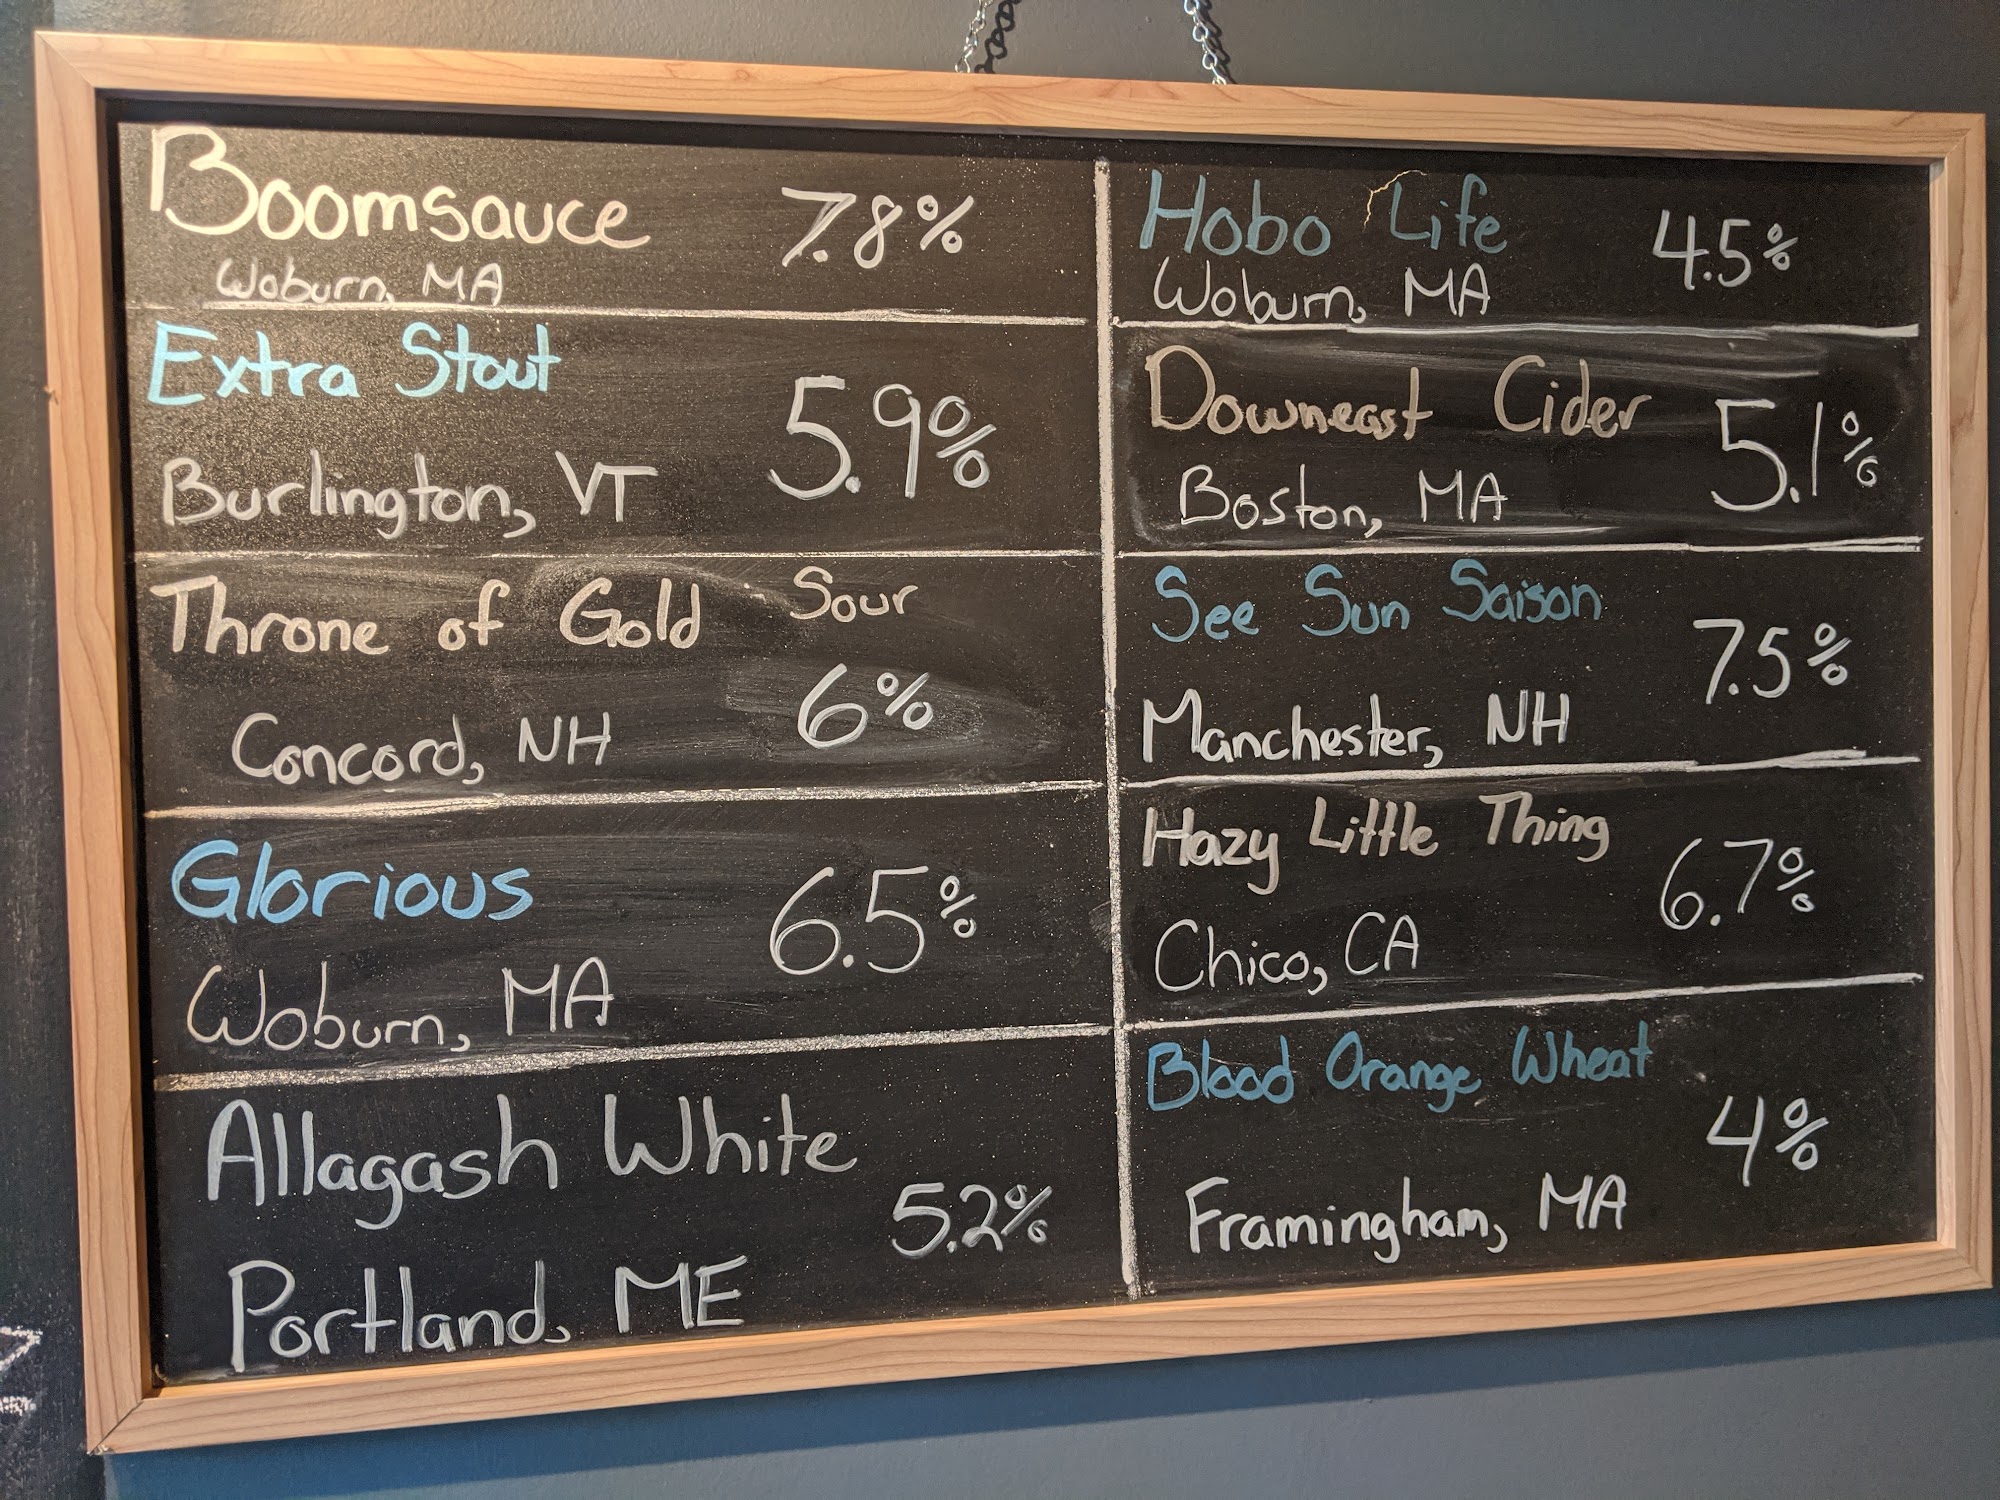 Boomsauce 7.8%
Woburn, MA
Extra Stout
5.9%
Burlington, VT
Throne of Gold Sour
6%
Concord, NH
Glorious
6.5%
Woburn, MA
Allagash White
5.2%
Portland, ME
Hobo Life 4.5%
Woburn, MA
Downeast Cider
5.1%
Boston, MA
See Sun Saison
7.5%
Manchester, NH
Hazy Little Thing
6.7%
Chico, CA
Blood Orange Wheat
4%
Framingham, MA